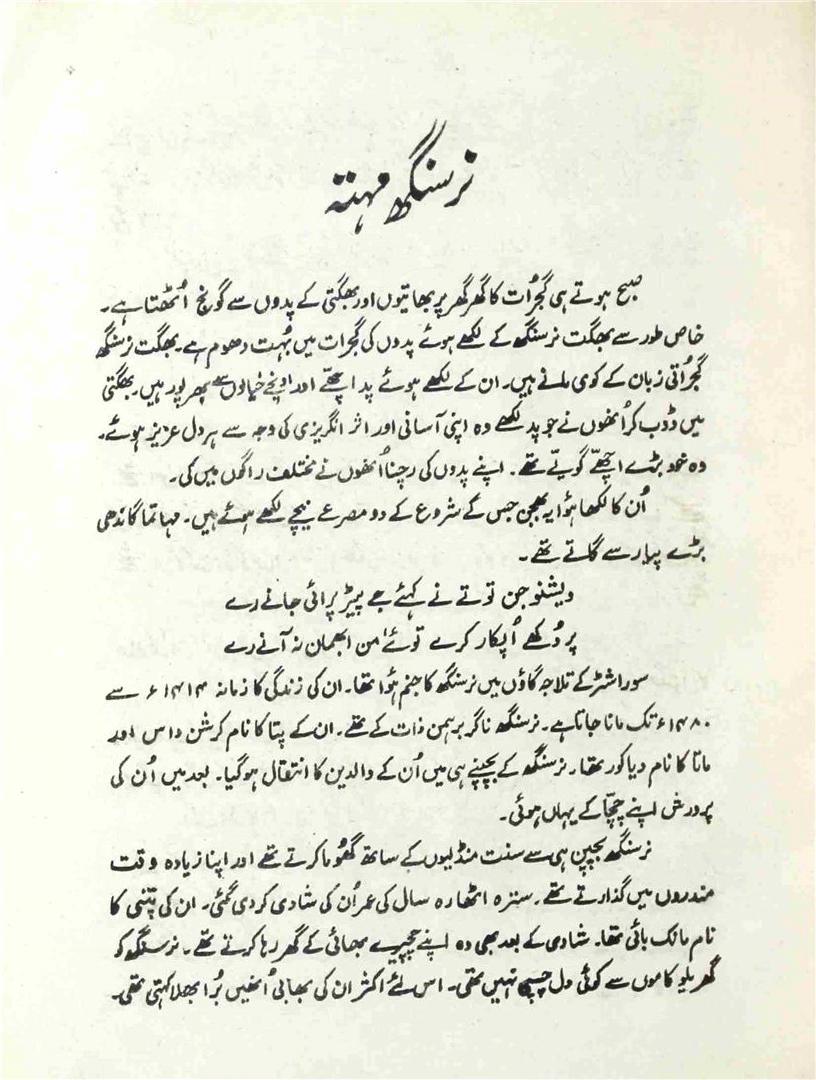 نرسنگھ مہتہ
صبح ہوتے ہی گجرُات کا گھر گھر پربھاتیوں اور بھگتی کے پدوں سے گونج اُٹھتا ہے۔
خاص طور سے بھگت نرسنگھ کے لکھے ہوئے پدوں کی گجرات میں بہُت دھوم ہے۔ بھگت نرسنگھ
گجرُاتی زبان کے کوی مانے ہیں۔ ان کے لکھے ہوئے پد اچھّے اور اونچے خیالوں سے بھرپور ہیں۔ بھگتی
میں ڈوب کر اُنھوں نے جو پد لکھے وہ اپنی آسانی اور اثر انگریزی کی وجہ سے ہر دل عزیز ہوئے۔
وہ خود بڑے اچھّے گویّے تھے۔ اپنے پدوں کی رچنا اُنھوں نے مختلف راگوں میں کی۔
اُن کا لکھا ہوُا یہ بھجن جس کے شروع کے دو مصرعے نیچے لکھے ہوئے ہیں۔ مہاتما گاندھی
بڑے پیار سے گاتے تھے۔
ویشنو جن تو تے نے کہئے جے پیڑ پرائی جانے رے
پر دُکھے اُپکار کرے توئے من ابھمان نہ آنے رے
سوراشٹر کے تلاجہ گاؤں میں نرسنگھ کا جنم ہوُا تھا۔ ان کی زندگی کا زمانہ ۱۴۱۴ء سے
۱۴۸۰ء تک مانا جاتا ہے۔ نرسنگھ ناگر برہمن ذات کے تھے۔ ان کے پتا کا نام کرشن داس اور
ماتا کا نام دیا کور تھا۔ نرسنگھ کے بچپنے ہی میں اُن کے والدین کا انتقال ہو گیا۔ بعد میں اُن کی
پرورش اپنے چچّا کے یہاں ہوئی۔
نرسنگھ بچپن ہی سے سنت منڈلیوں کے ساتھ گھوُما کرتے تھے اور اپنا زیادہ وقت
مندروں میں گذارتے تھے۔ سترہ اٹھارہ سال کی عمر اُن کی شادی کر دی گئی۔ ان کی پتنی کا
نام مانک بائی تھا۔ شادی کے بعد بھی وہ اپنے چچیرے بھائی کے گھر رہا کرتے تھے۔ نرسنگھ کو
گھریلو کاموں سے کوئی دل چسپی نہیں تھی۔ اس لئے اکثر ان کی بھابی اُنھیں بُرا بھلا کہتی تھی۔